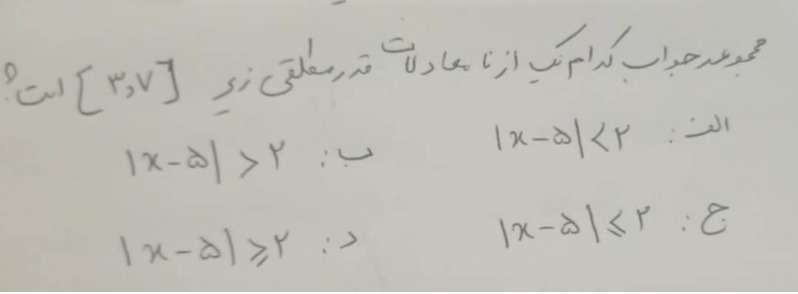 مجموعه جواب کدام یک از نامعادلات قدرمطلقی زیر [۳,۷] است؟
الف: |x-۵|<۲ ب: |x-۵|>۲
ج: |x-۵|≤۲ د: |x-۵|≥۲